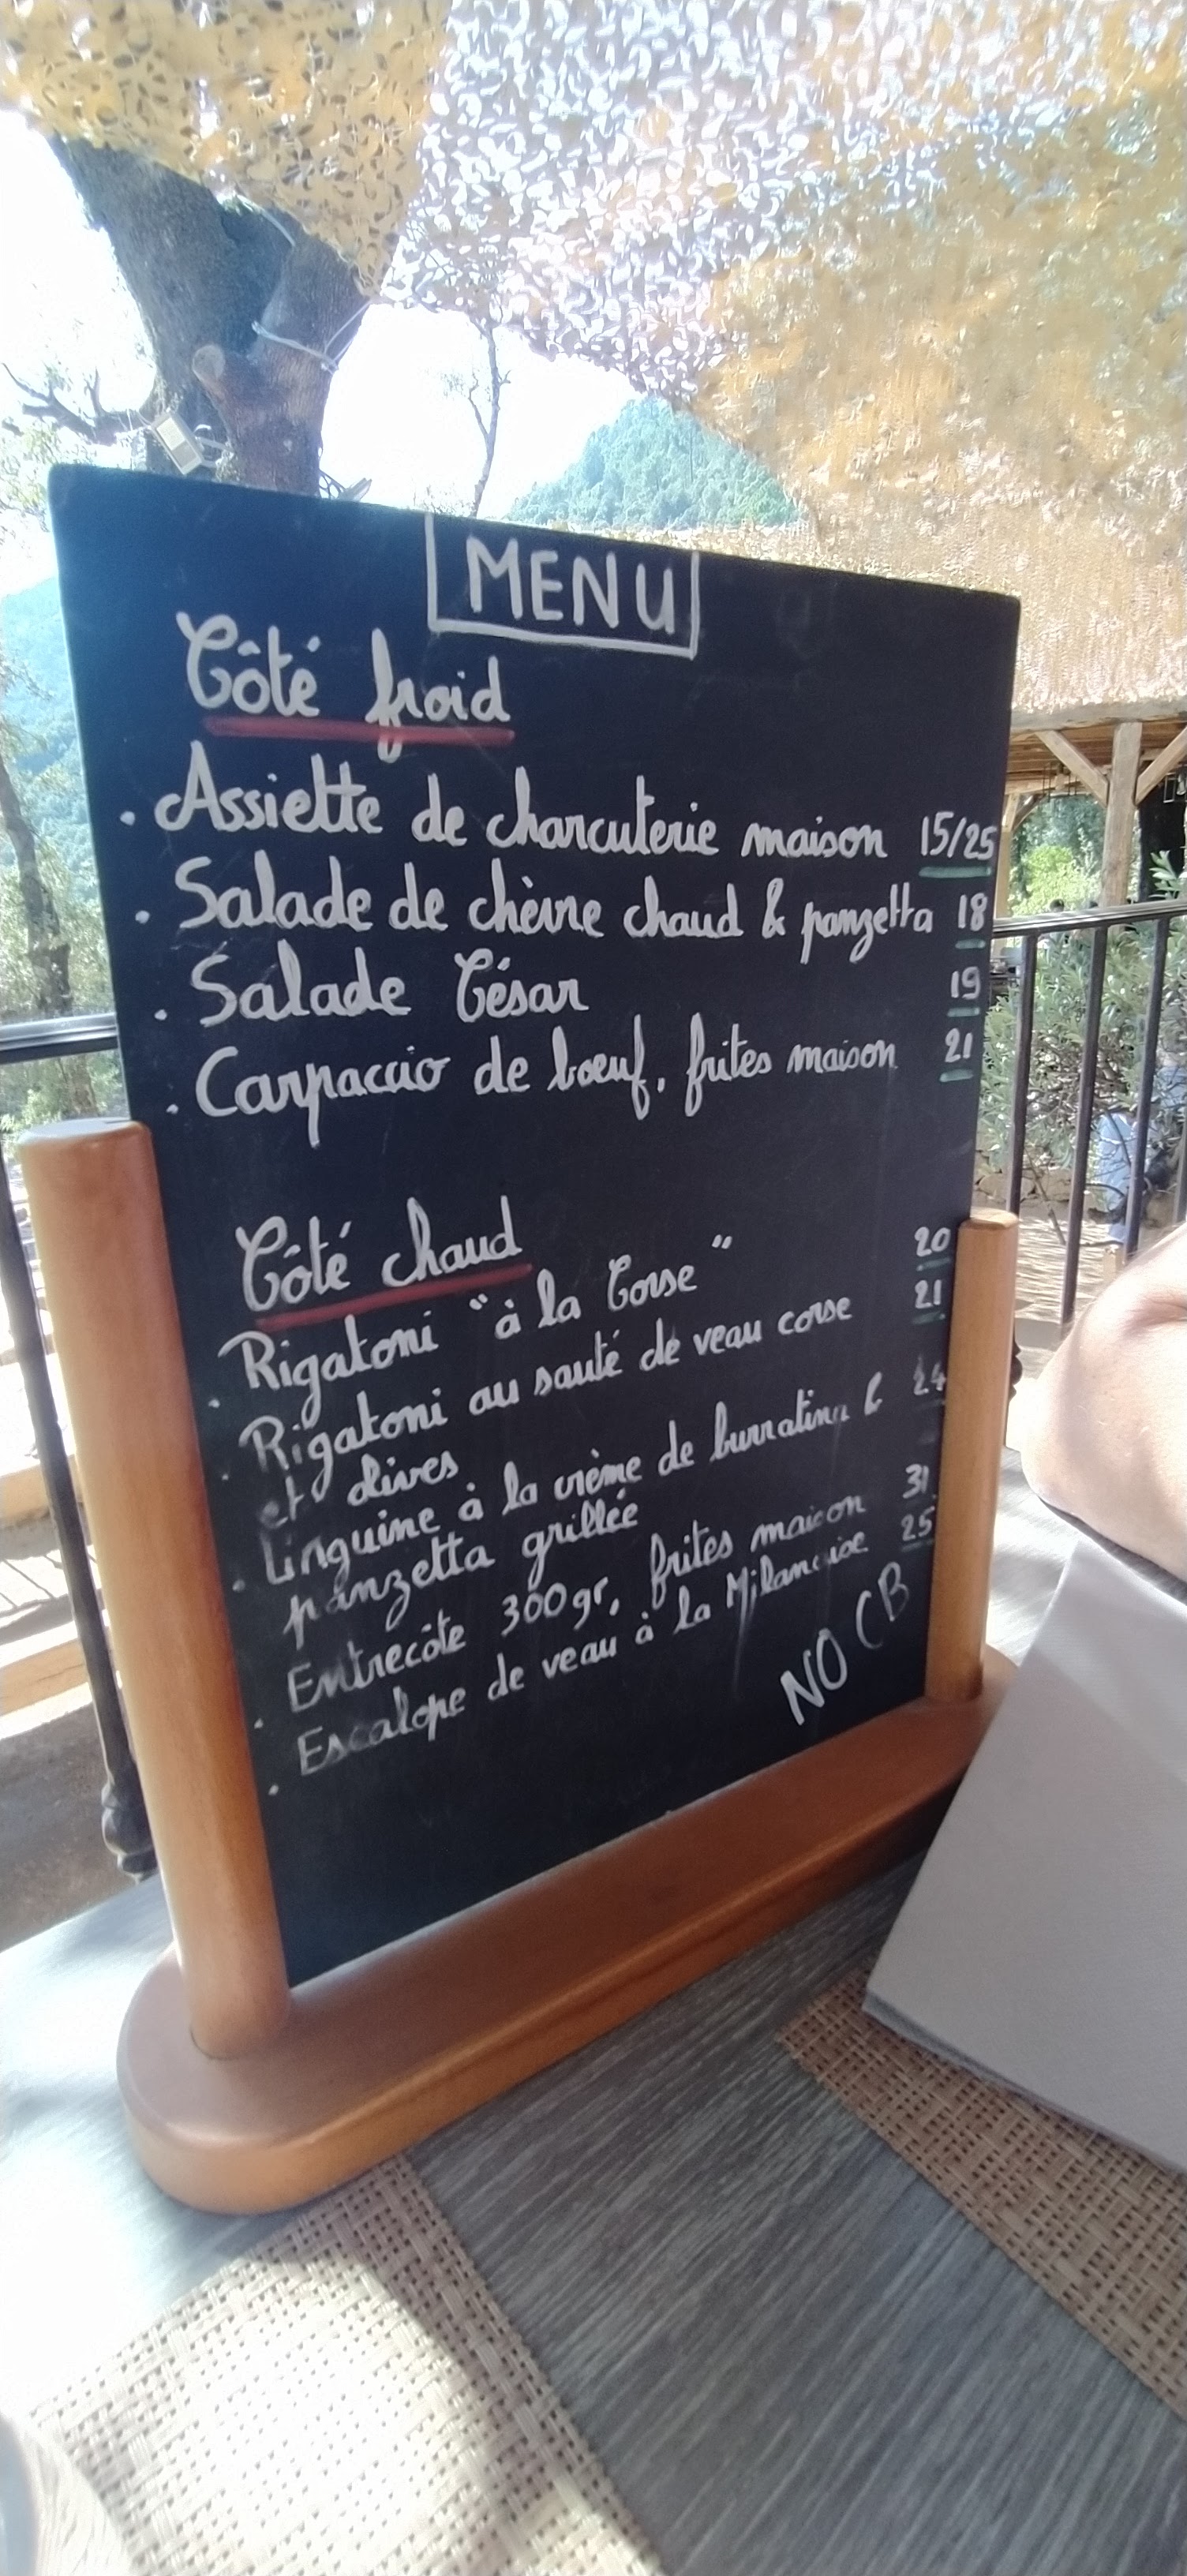 MENU
Côté froid
. Assiette de charcuterie maison 15/25
. Salade de chèvre chaud & panzetta 18
. Salade César 19
. Carpaccio de boeuf, frites maison 21
Côté chaud
. Rigatoni "à la Corse" 20
. Rigatoni au sauté de veau corse 21
et olives
. Linguine à la crème de burratina & 24
panzetta grillée
. Entrecôte 300gr, frites maison 31
. Escalope de veau à la Milanaise 25
NO CB